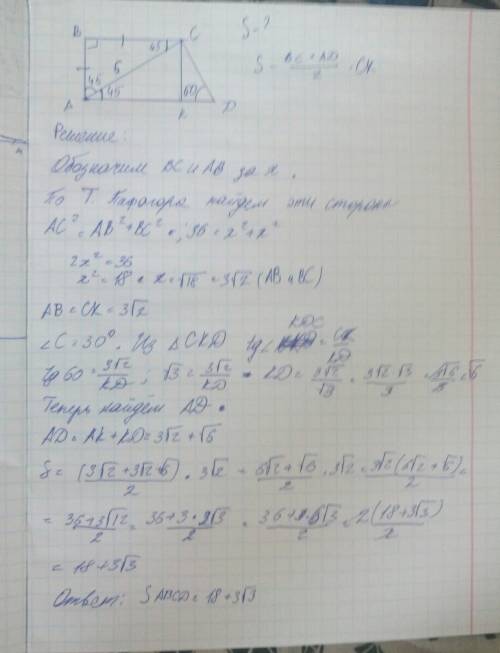 B C S-?
45 6 S = BC + AD / 2 · CK
45 45 60
A K D
Решение:
Обозначим BC и AB за x.
По Т. Пифагора найдем эти стороны
AC² = AB² + BC² ; 36 = x² + x²
2x² = 36
x² = 18 x = √18 = 3√2 (AB и BC)
AB = CK = 3√2
∠C = 30°. Из △CKD tg∠KDC = CK/KD
tg 60 = 3√2/KD ; √3 = 3√2/KD KD = 3√2/√3 = 3√2·√3/3 = 3√6/3 = √6
Теперь найдём AD.
AD = AK + KD = 3√2 + √6
S = (3√2 + 3√2 + √6)/2 · 3√2 = 6√2 + √6/2 · 3√2 = 3√2(6√2 + √6)/2 =
= 36 + 3√12/2 = 36 + 3·2√3/2 = 36 + 6√3/2 = 2(18 + 3√3)/2
= 18 + 3√3
Ответ: S ABCD = 18 + 3√3